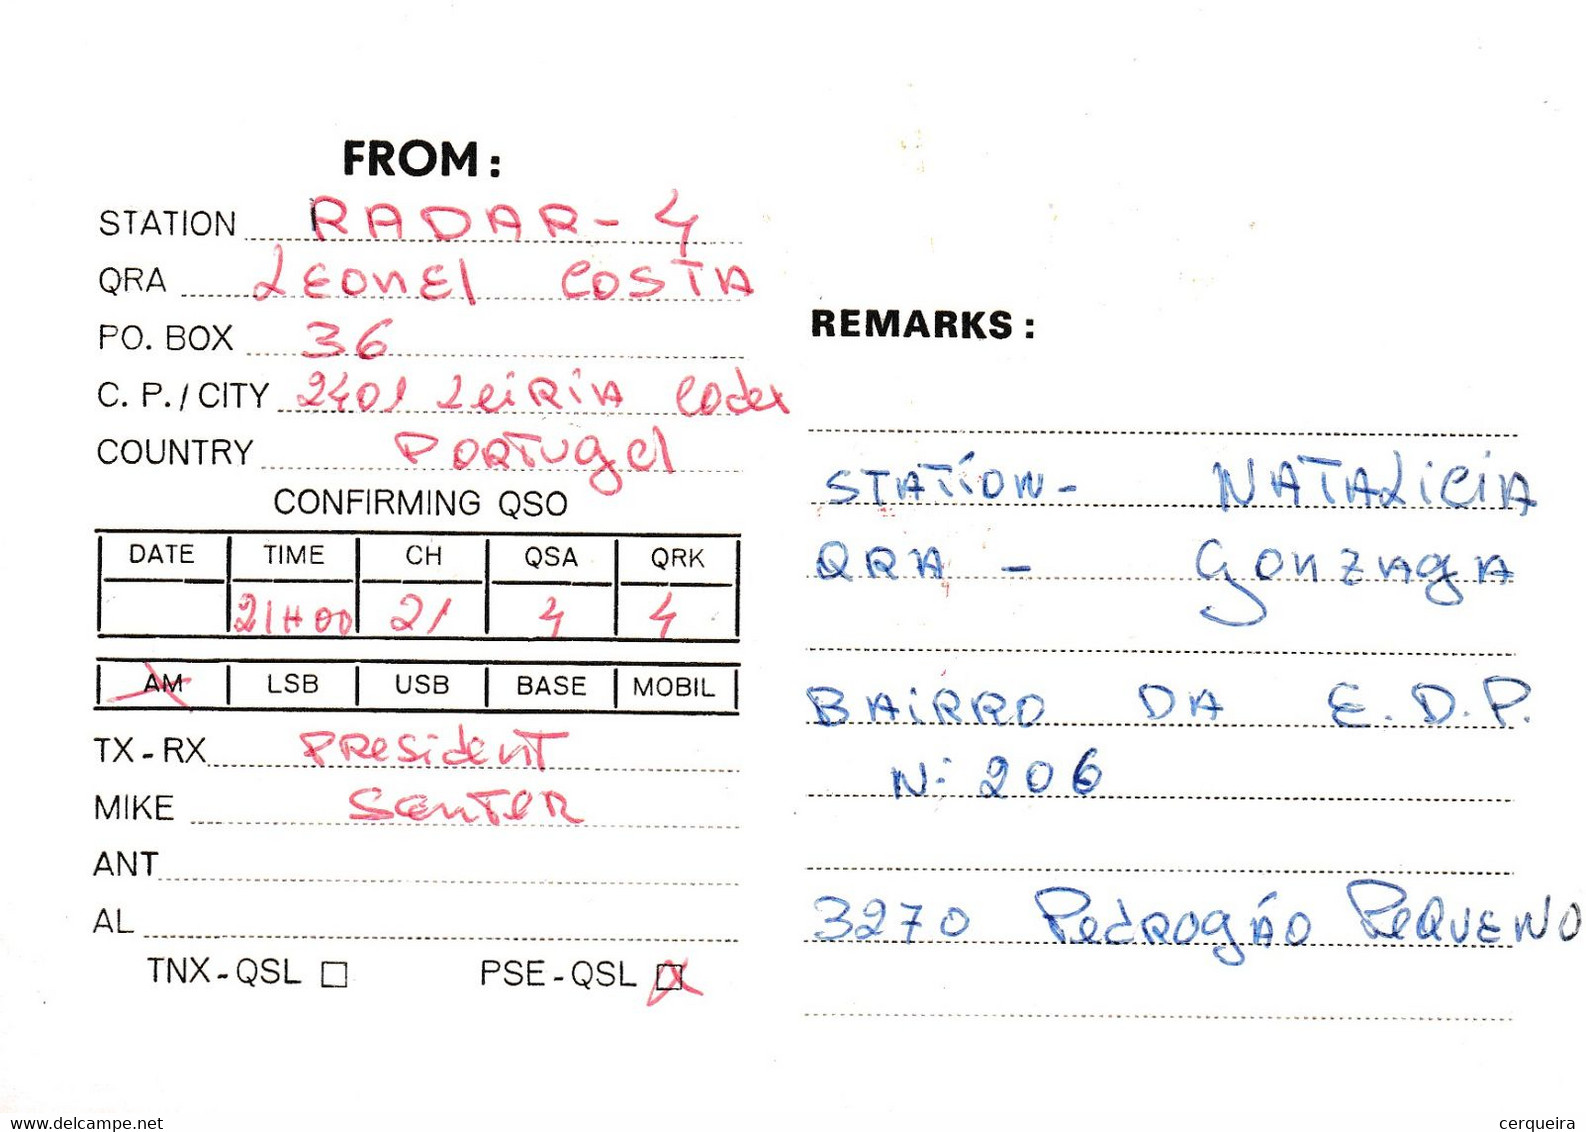 FROM:
STATION RADAR-4
QRA LEONEL COSTA
PO. BOX 36
C. P. / CITY 2401 LEiRiA Codex
COUNTRY PORTUgal
CONFIRMING QSO
DATE TIME CH QSA QRK
21H00 21 4 4
AM LSB USB BASE MOBIL
TX-RX PResidenT
MIKE SenTeR
ANT
AL
TNX-QSL PSE-QSL
REMARKS:
STATiON- NATALiCiA
QRA - gonzAgA
BAiRRO DA E.D.P.
N: 206
3270 PedROgÃO PEQUENO
Delcampe.net
cerqueira